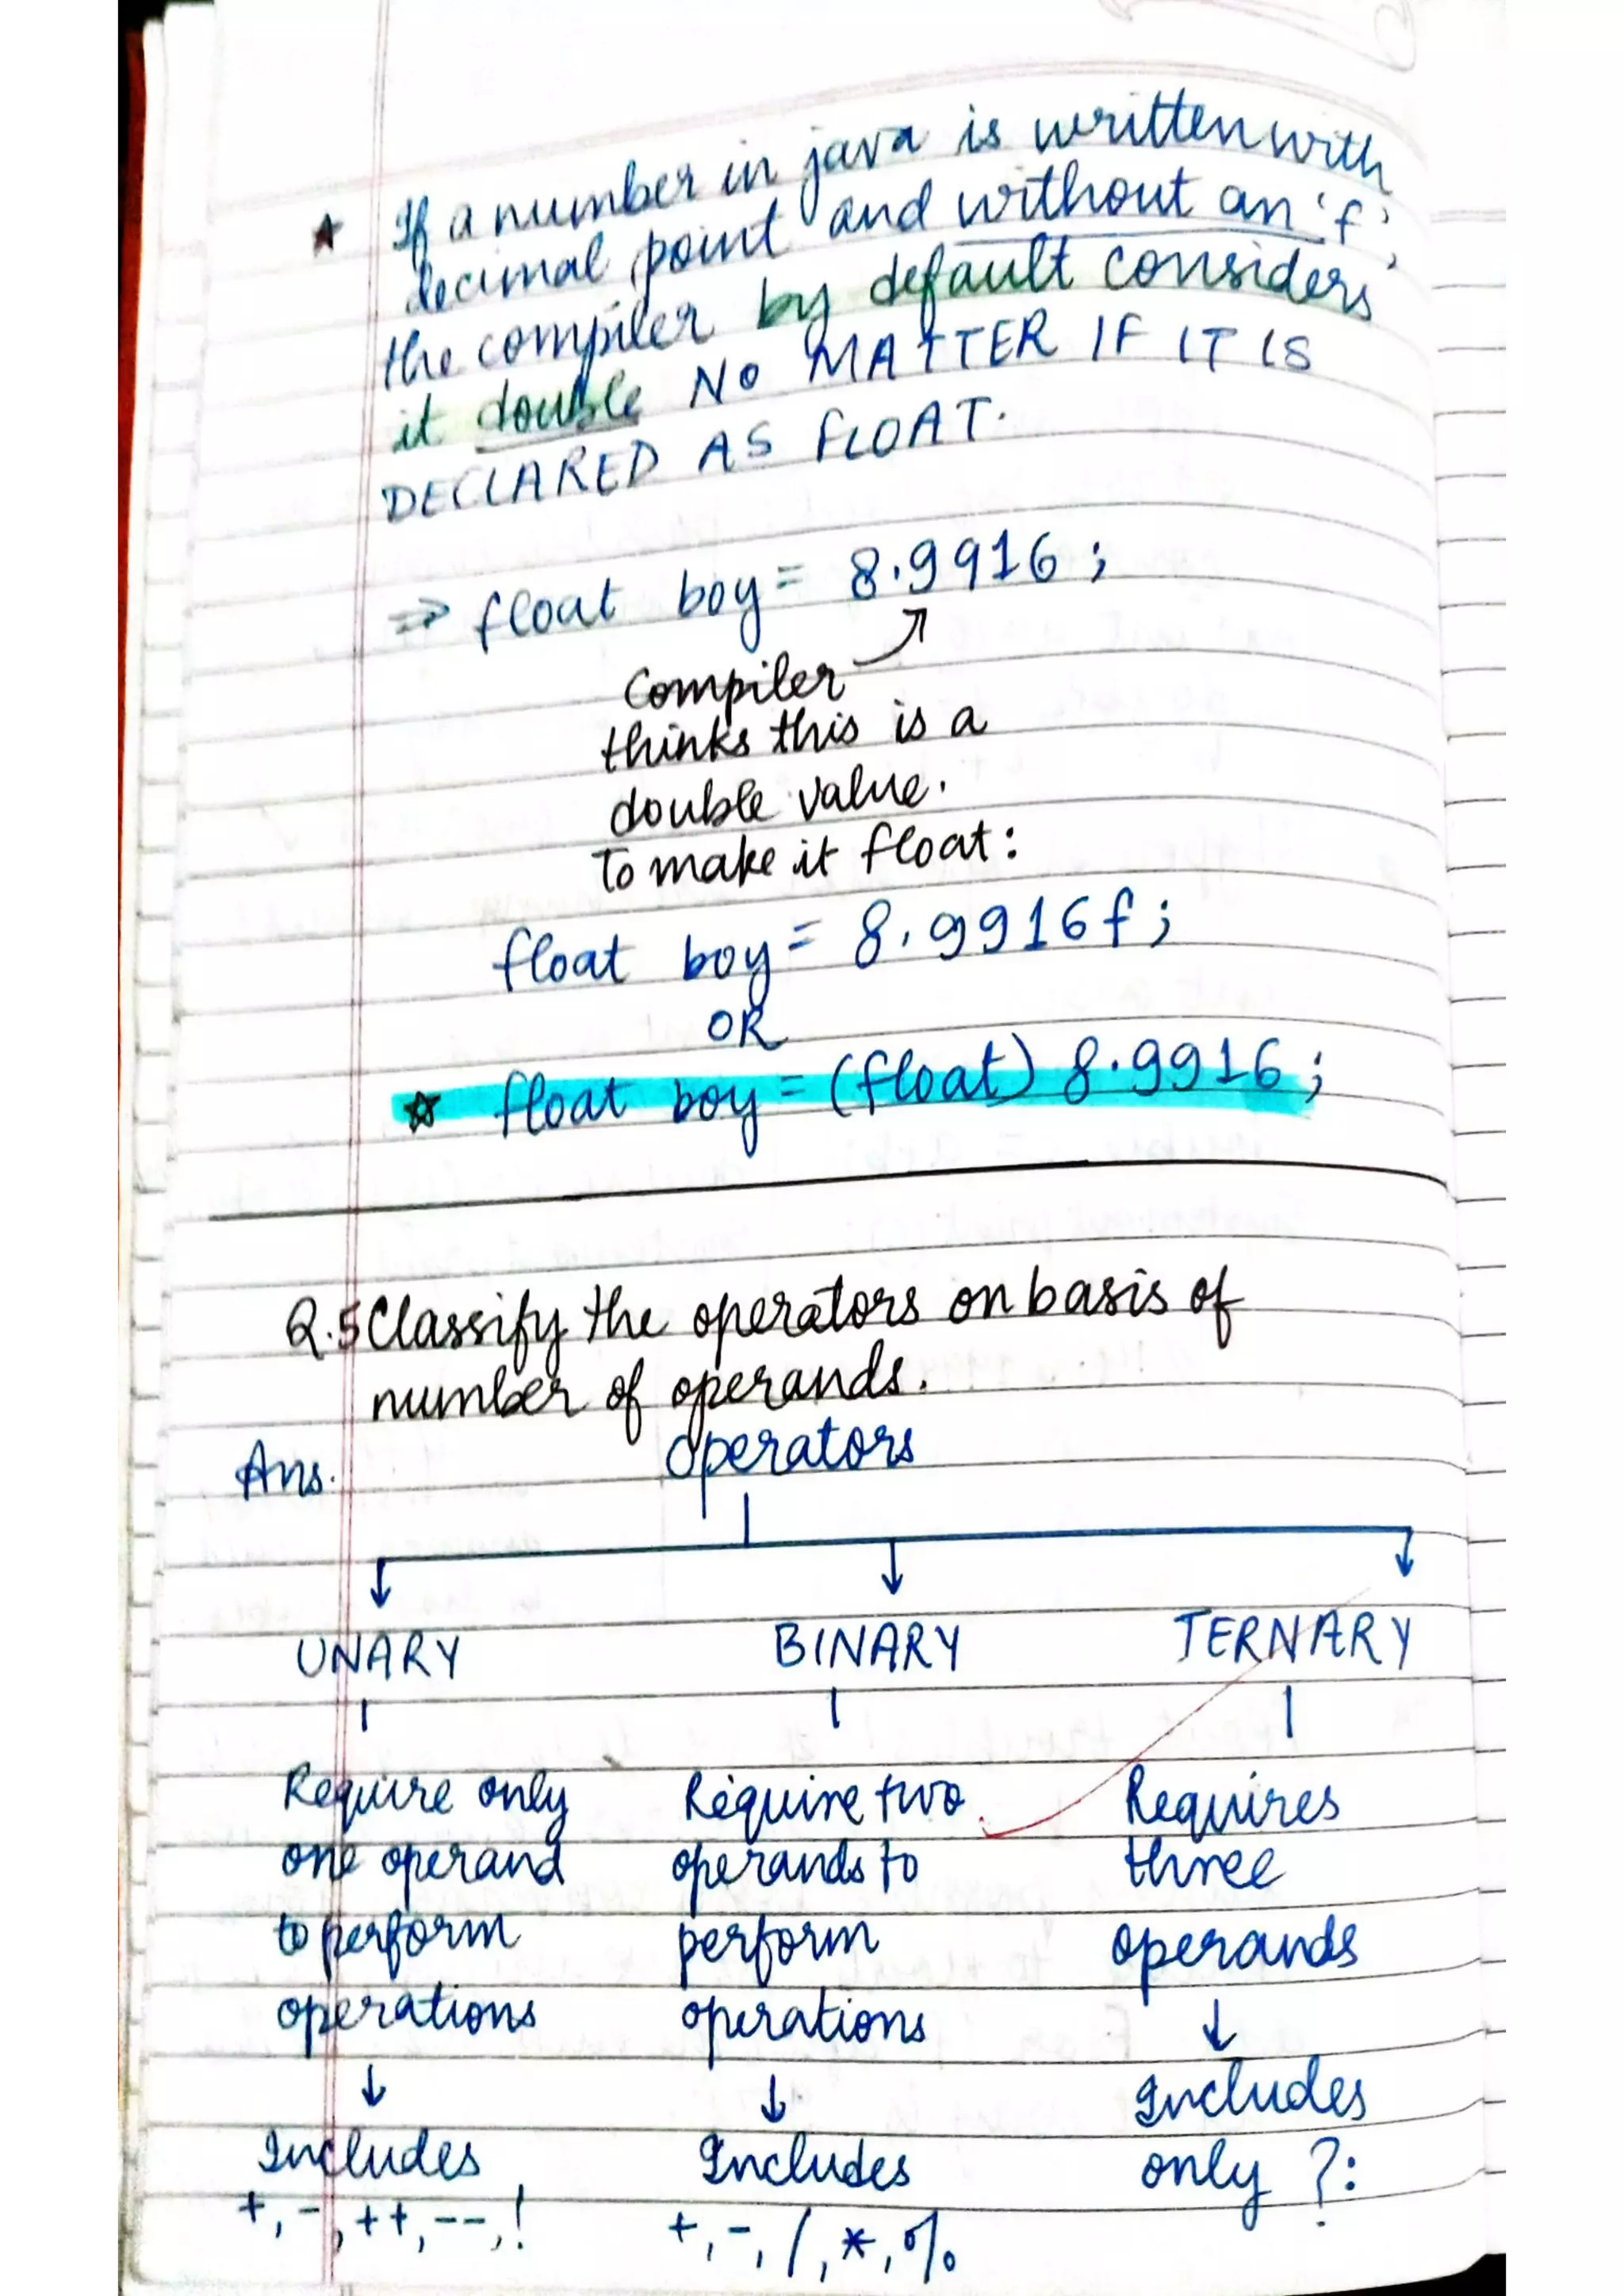 ★ If a number in java is written with
decimal point and without an 'f',
the compiler by default considers
it double NO MATTER IF IT IS
DECLARED AS FLOAT.
⇒ float boy = 8.9916;
Compiler
thinks this is a
double value.
To make it float:
float boy = 8.9916f;
OR
☆ float boy = (float) 8.9916;
Q.5 Classify the operators on basis of
number of operands.
Ans. Operators
UNARY BINARY TERNARY
Require only Require two Requires
one operand operands to three
to perform perform operands
operations operations ↓
↓ ↓ Includes
Includes Includes only ?:
+, -, ++, --, ! +, -, /, *, %